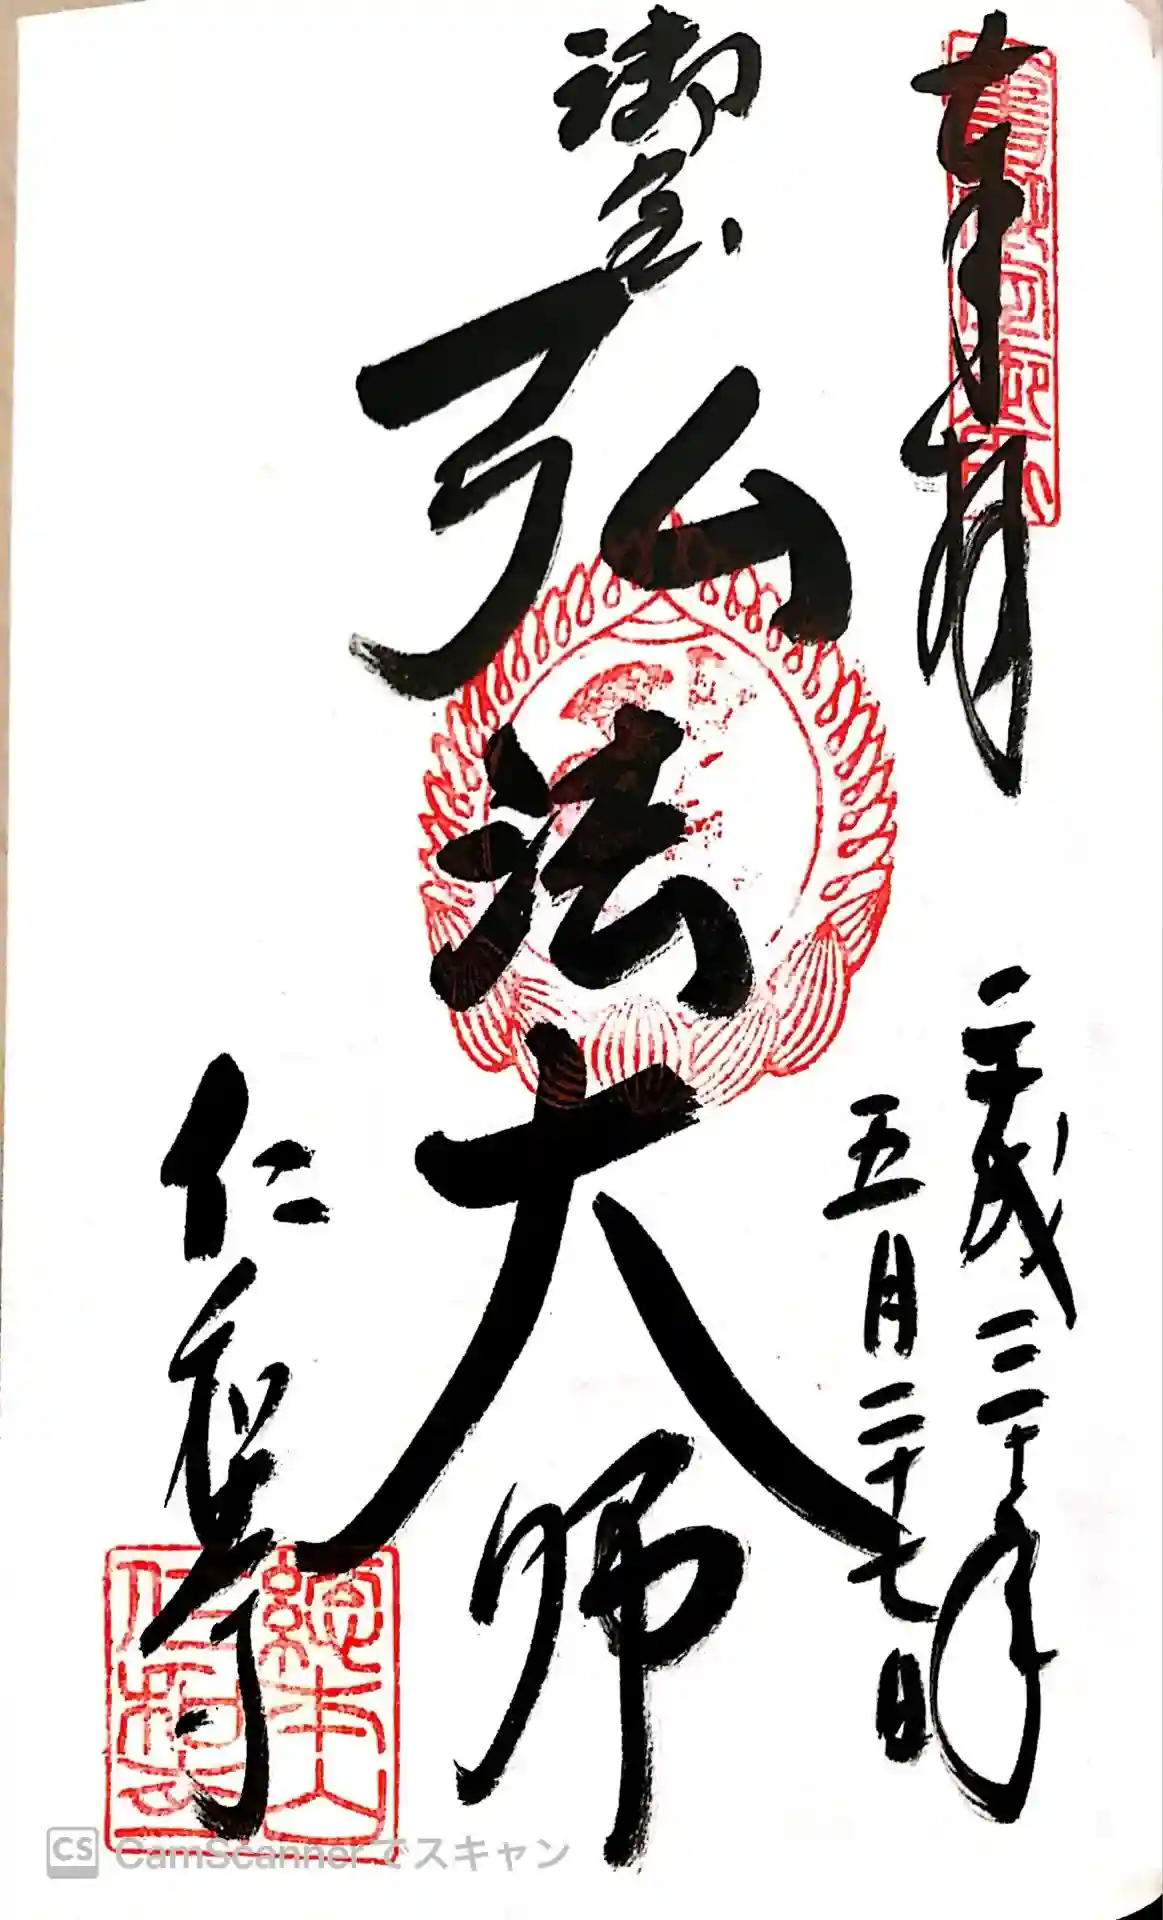 奉拝
平成三十年
五月二十七日
御室
弘法大師
仁和寺
總本山
仁和寺
CS CamScannerでスキャン